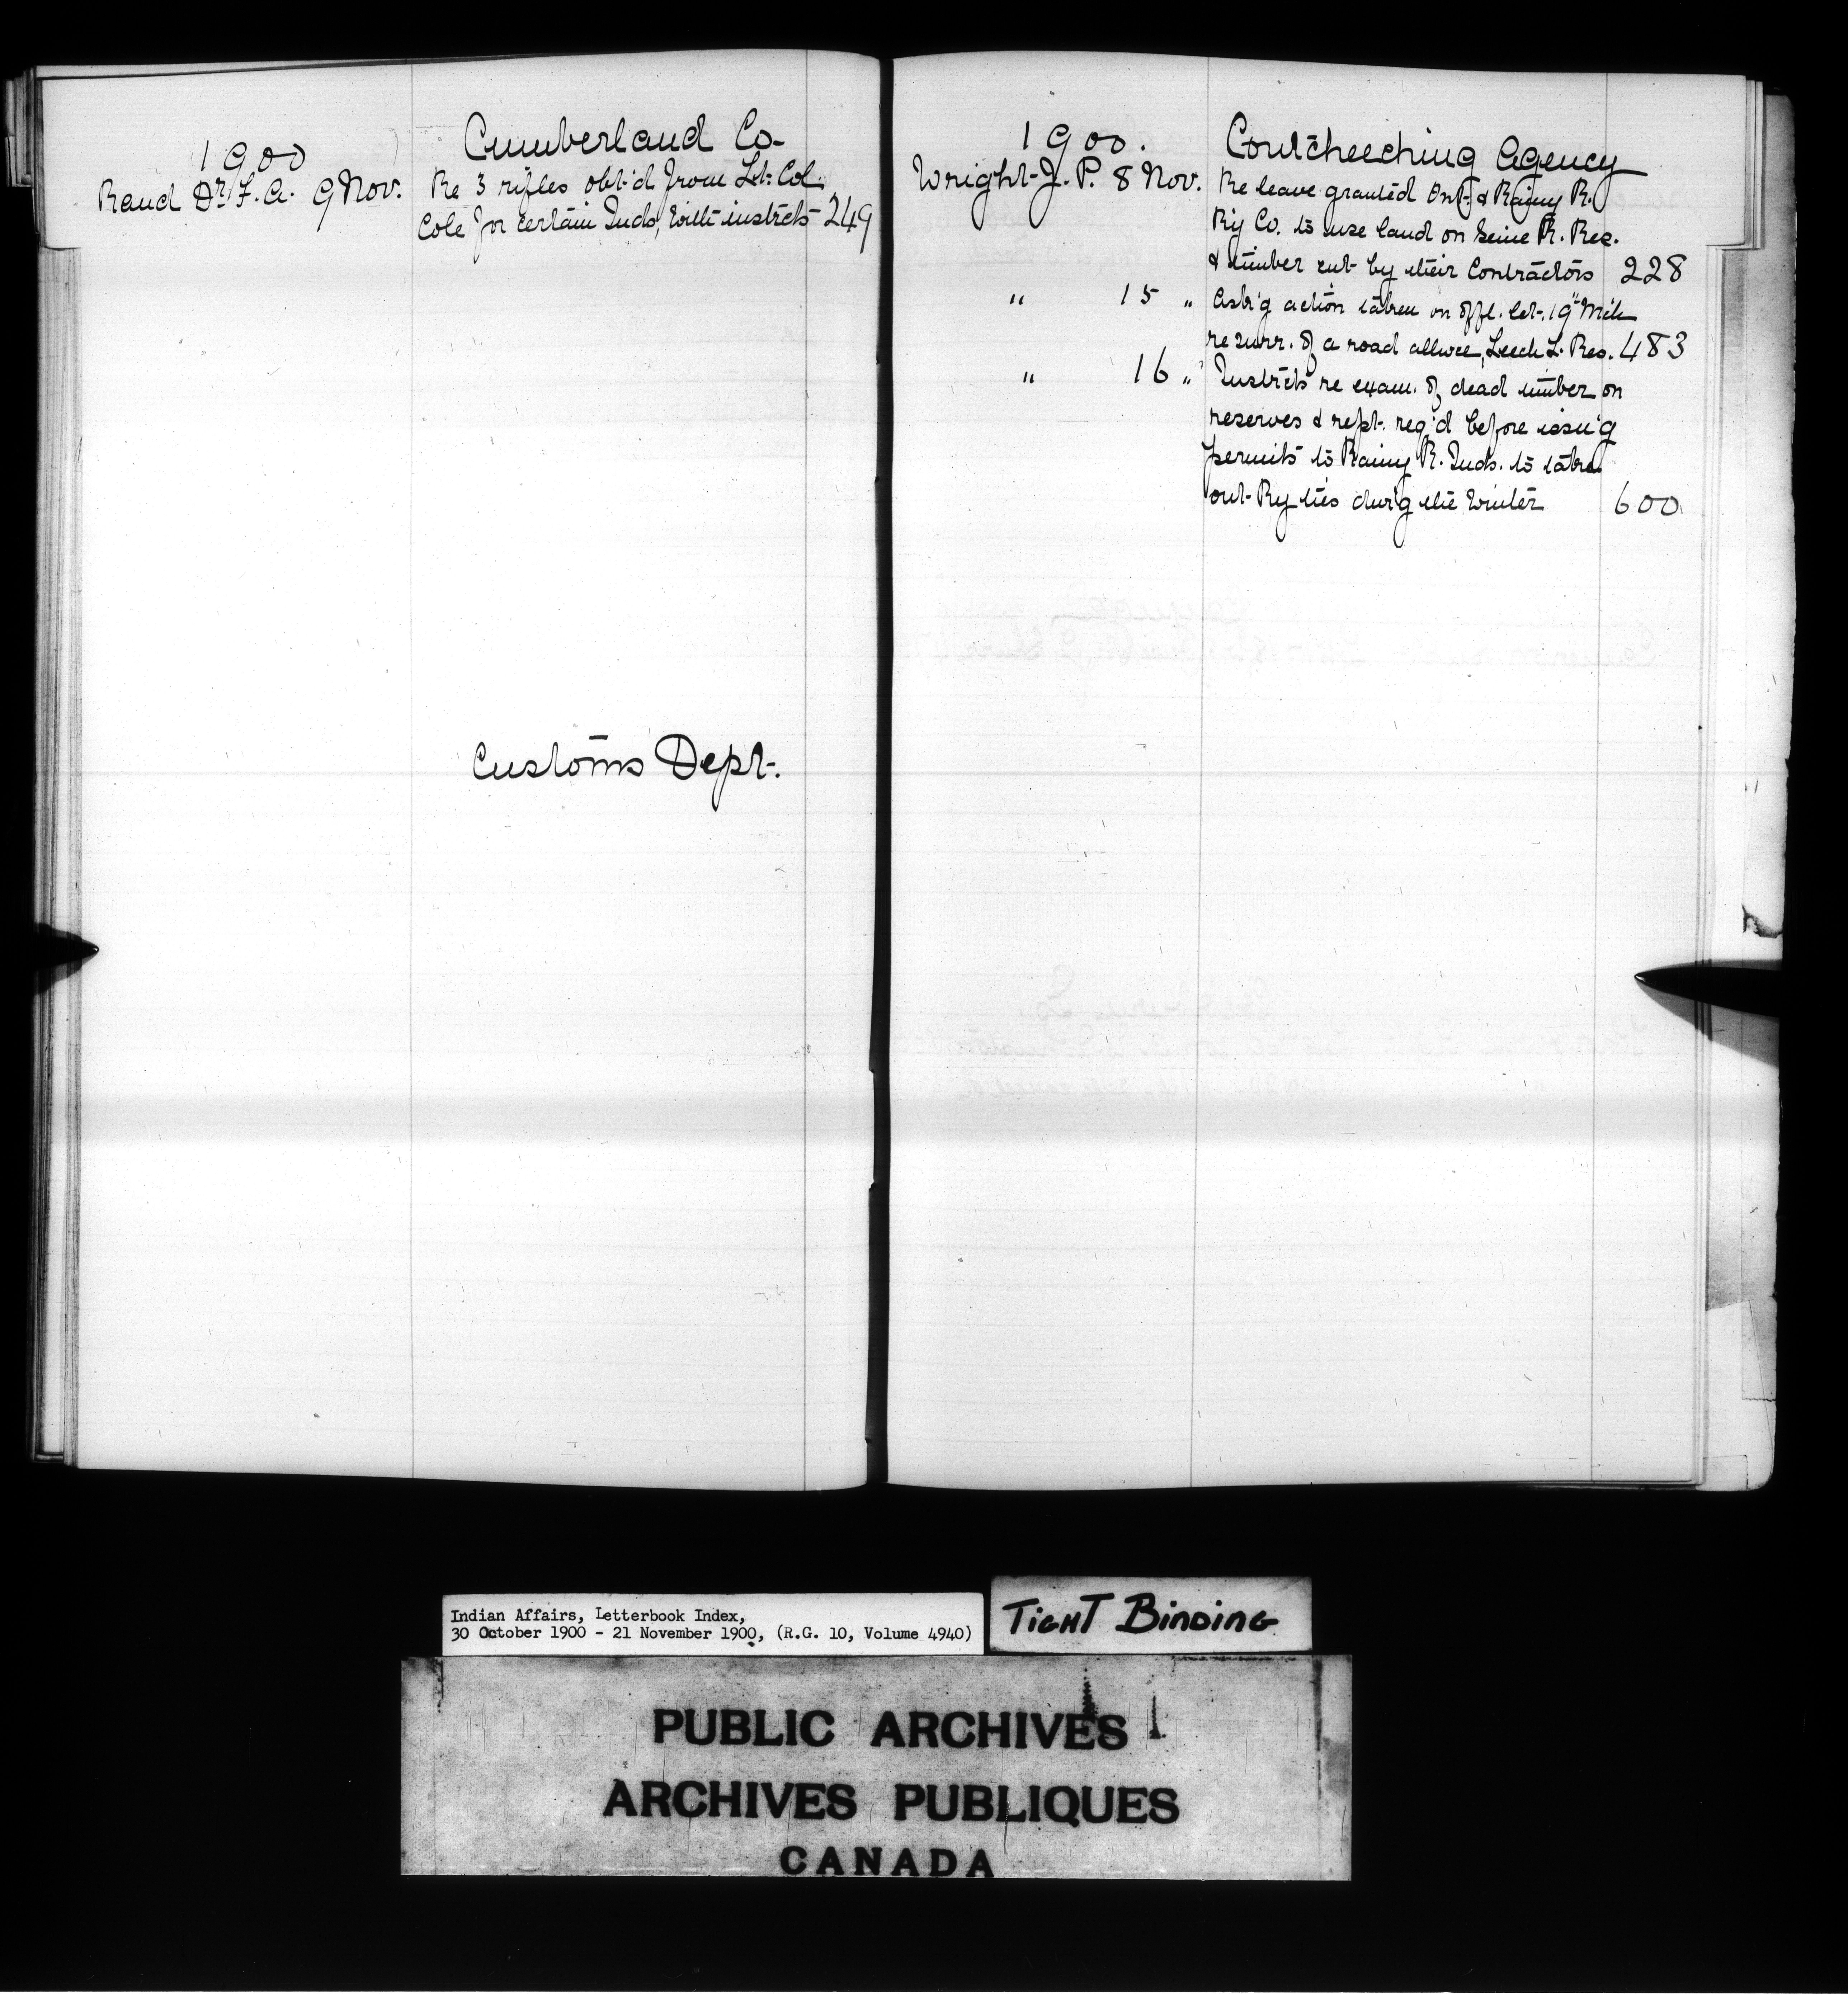 1900
Cumberland Co.
Rand Dr. F. A. 9 Nov. Re 3 rifles obt'd from Lt. Col.
Cole for certain Inds, with instrcts 249
Customs Dept.
1900.
Coutcheeching Agency
Wright J. P. 8 Nov. Re leave granted Ont. & Rainy R.
Ry Co. to use land on Seine R. Res.
& timber cut by their Contractors 228
" 15 " Ask'g action taken on offl. let. 19th Mch
re surr. of a road allwce, Leech L. Res. 483
" 16 " Instrcts re exam. of dead timber on
reserves & rept. req'd before issu'g
permits to Rainy R. Inds. to take
out Ry ties dur'g the Winter 600
Indian Affairs, Letterbook Index,
30 October 1900 - 21 November 1900, (R.G. 10, Volume 4940)
TIGHT BINDING
PUBLIC ARCHIVES
ARCHIVES PUBLIQUES
CANADA